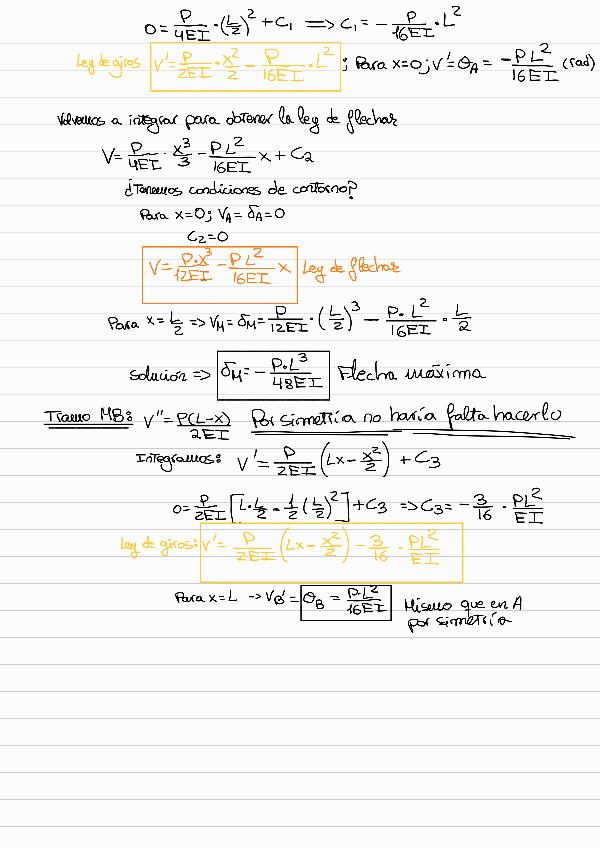 0 = P/4EI · (L/2)² + C₁ ⟹ C₁ = - P/16EI · L²
Ley de giros V' = P/2EI · x²/2 - P/16EI · L² ; Para x=0; V' = θA = -PL²/16EI (rad)
Volvemos a integrar para obtener la ley de flechas
V = P/4EI · x³/3 - PL²/16EI x + C₂
¿Tenemos condiciones de contorno?
Para x=0; VA = δA = 0
C₂=0
V = P·x³/12EI - PL²/16EI x Ley de flechas
Para x = L/2 => VM = δM = P/12EI · (L/2)³ - P·L²/16EI · L/2
Solución => δM = - P·L³/48EI Flecha máxima
Tramo MB: V'' = P(L-x)/2EI Por simetría no haría falta hacerlo
Integramos: V' = P/2EI (Lx - x²/2) + C₃
0 = P/2EI [L·L/2 - 1/2 (L/2)²] + C₃ => C₃ = - 3/16 · PL²/EI
Ley de giros: V' = P/2EI (Lx - x²/2) - 3/16 · PL²/EI
Para x=L -> VB' = θB = P·L²/16EI Mismo que en A
por simetría